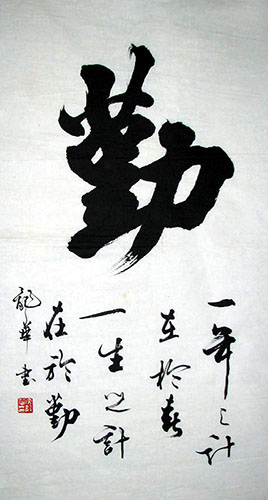 勤
一年之計
在於春
一生之計
在於勤
龍華書